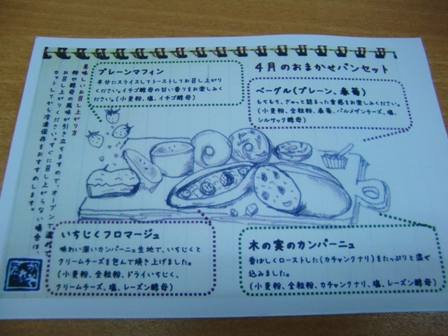 4月のおまかせパンセット
プレーンマフィン
半分にスライスしてトーストしてお召し上がり
ください。イチゴ酵母の甘い香りをお楽しみくだ
さい。(小麦粉、塩、イチゴ酵母)
ベーグル(プレーン、春苺)
もちもち、ぎゅっと詰まった食感をお楽しみください。
いちじくフロマージュ
味わい深いカンパーニュ生地で、いちじくと
クリームチーズを包んで焼き上げました。
(小麦粉、全粒粉、ドライいちじく、
クリームチーズ、塩、レーズン酵母)
木の実のカンパーニュ
香ばしくローストした(カチャンクナリ)をたっぷりと混ぜ
込みました。
(小麦粉、全粒粉、カチャンクナリ、塩、レーズン酵母)